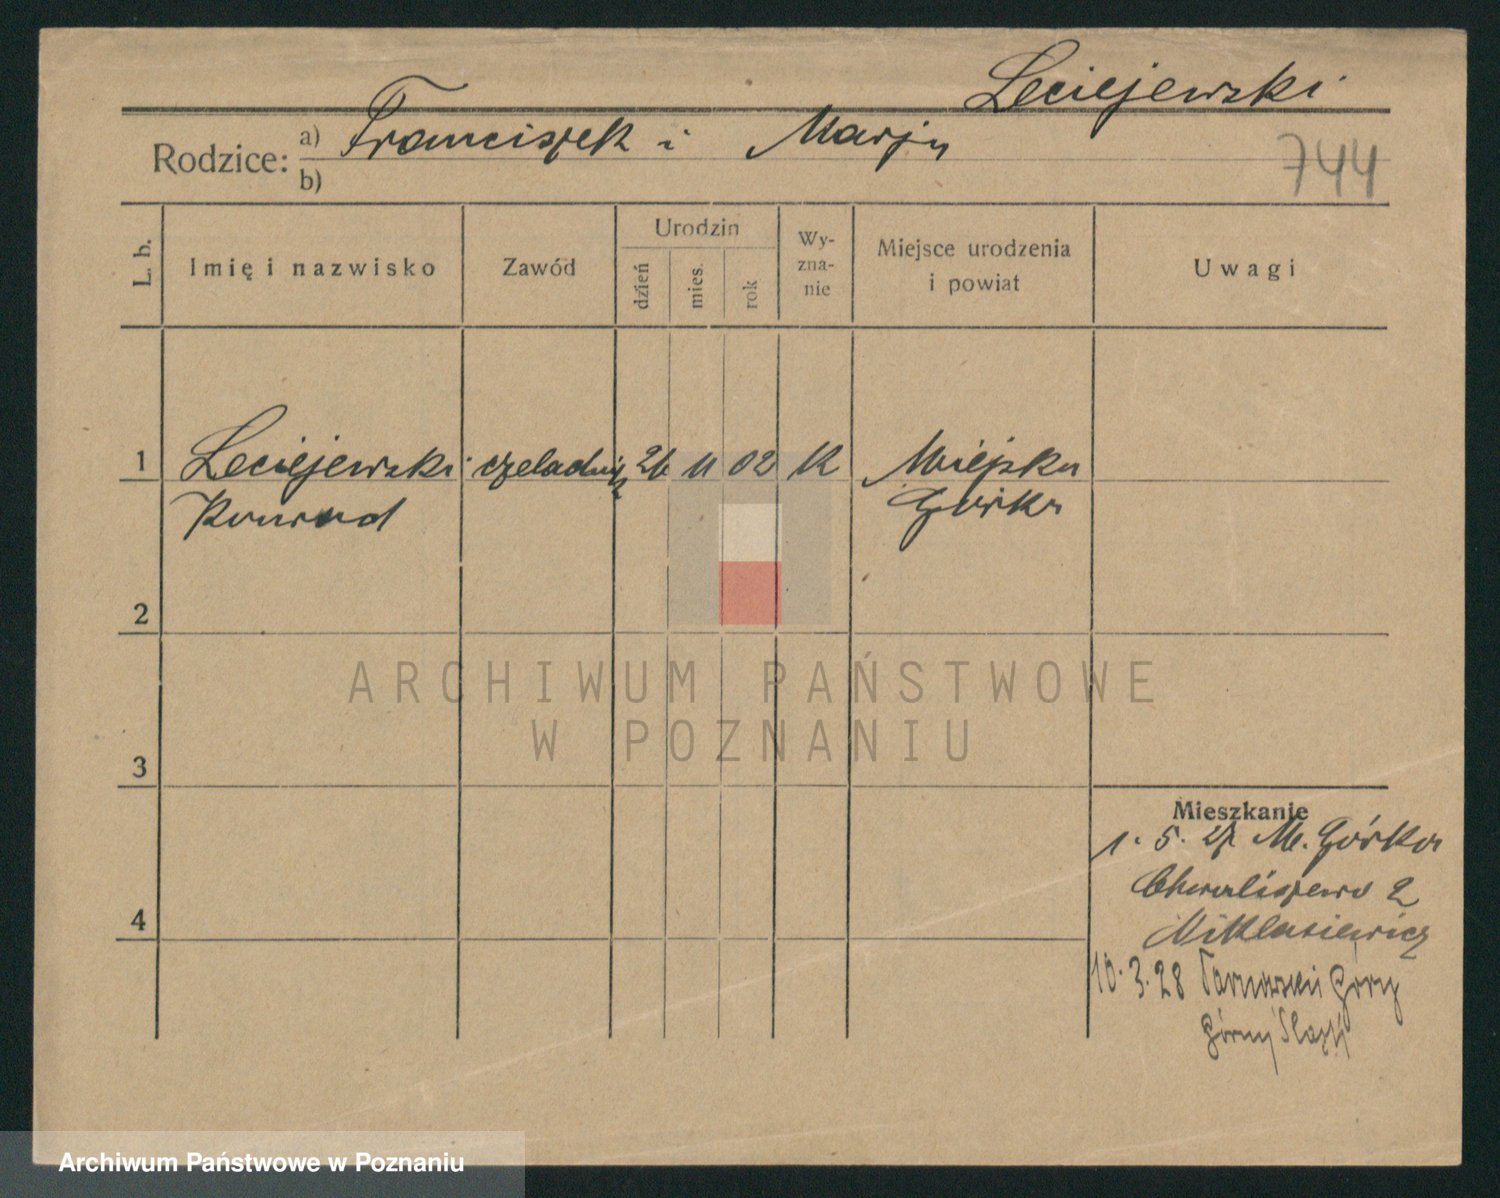 Leciejewski
Rodzice: a) Franciszek i Marja
b)
744
L. b.
Imię i nazwisko
Zawód
Urodzin
dzień
mies.
rok
Wy-
zna-
nie
Miejsce urodzenia
i powiat
Uwagi
1 Leciejewski czeladnik 26 11 02 K Miejska
Konrad Górka
2
3
4
Mieszkanie
1. 5. 27 M. Górka
Chwaliszewo 2
Niklasiewicz
10. 3. 28 Tarnowskie Góry
Górny Śląsk
ARCHIWUM PAŃSTWOWE
W POZNANIU
Archiwum Państwowe w Poznaniu